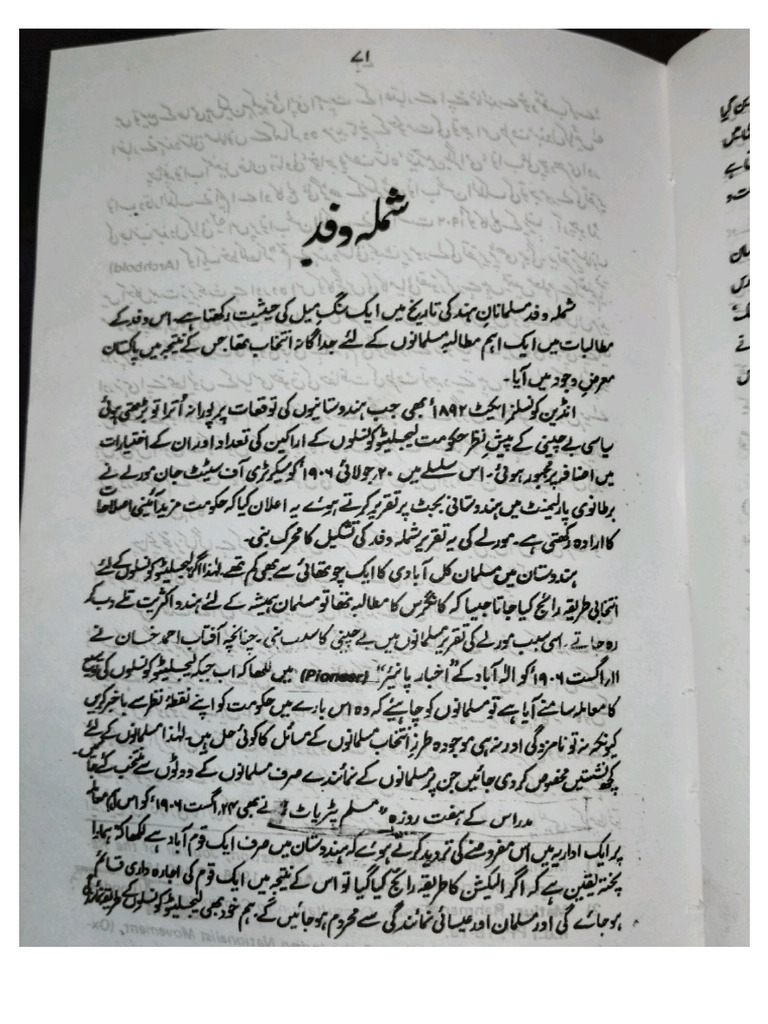 ۷۱
شملہ وفد
شملہ وفد مسلمانانِ ہند کی تاریخ میں ایک سنگِ میل کی حیثیت رکھتا ہے۔ اس وفد کے
مطالبات میں ایک اہم مطالبہ مسلمانوں کے لئے جداگانہ انتخاب تھا جس کے نتیجہ میں پاکستان
معرضِ وجود میں آیا۔
انڈین کونسلز ایکٹ ۱۸۹۲ء بھی جب ہندوستانیوں کی توقعات پر پورا نہ اُترا تو بڑھتی ہوئی
سیاسی بے چینی کے پیشِ نظر حکومت لیجسلیٹو کونسلوں کے اراکین کی تعداد اور ان کے اختیارات
میں اضافہ پر مجبور ہوئی۔ اس سلسلے میں ۲۰ جولائی ۱۹۰۶ء کو سیکرٹری آف سٹیٹ جان مورلے نے
برطانوی پارلیمنٹ میں ہندوستانی بجٹ پر تقریر کرتے ہوئے یہ اعلان کیا کہ حکومت مزید آئینی اصلاحات
کا ارادہ رکھتی ہے۔ مورلے کی یہ تقریر شملہ وفد کی تشکیل کا محرک بنی۔
ہندوستان میں مسلمان کل آبادی کا ایک چوتھائی سے بھی کم تھے۔ لہٰذا اگر لیجسلیٹو کونسلوں کے لئے
انتخابی طریقہ رائج کیا جاتا جیسا کہ کانگرس کا مطالبہ تھا تو مسلمان ہمیشہ کے لئے ہندو اکثریت تلے دب کر
رہ جاتے۔ اسی سبب مورلے کی تقریر مسلمانوں میں بے چینی کا سبب بنی۔ چنانچہ آفتاب احمد خان نے
۱۱ اگست ۱۹۰۶ء کو الٰہ آباد کے "اخبار پانیئر" (Pioneer) میں لکھا کہ اب جبکہ لیجسلیٹو کونسلوں کی توسیع
کا معاملہ سامنے آیا ہے تو مسلمانوں کو چاہیئے کہ وہ اس بارے میں حکومت کو اپنے نقطۂ نظر سے باخبر کریں
کیونکہ نہ تو نامزدگی اور نہ ہی موجودہ طرزِ انتخاب مسلمانوں کے مسائل کا کوئی حل ہیں۔ لہٰذا مسلمانوں کے لئے
کچھ نشستیں مخصوص کر دی جائیں جن پر مسلمانوں کے نمائندے صرف مسلمانوں کے ووٹوں سے منتخب کئے جا سکیں۔
مدراس کے ہفت روزہ "مسلم پٹریاٹ" نے بھی ۲۴ اگست ۱۹۰۶ء کو اس اہم معاملے
پر ایک اداریہ میں اس مفروضے کی تردید کرتے ہوئے کہ ہندوستان میں صرف ایک قوم آباد ہے لکھا کہ ہمارا
پختہ یقین ہے کہ اگر الیکشن کا طریقہ رائج کیا گیا تو اس کے نتیجہ میں ایک قوم کی اجارہ داری قائم
ہو جائے گی اور مسلمان اور عیسائی نمائندگی سے محروم ہو جائیں گے۔ ہم خود بھی لیجسلیٹو کونسلوں کے